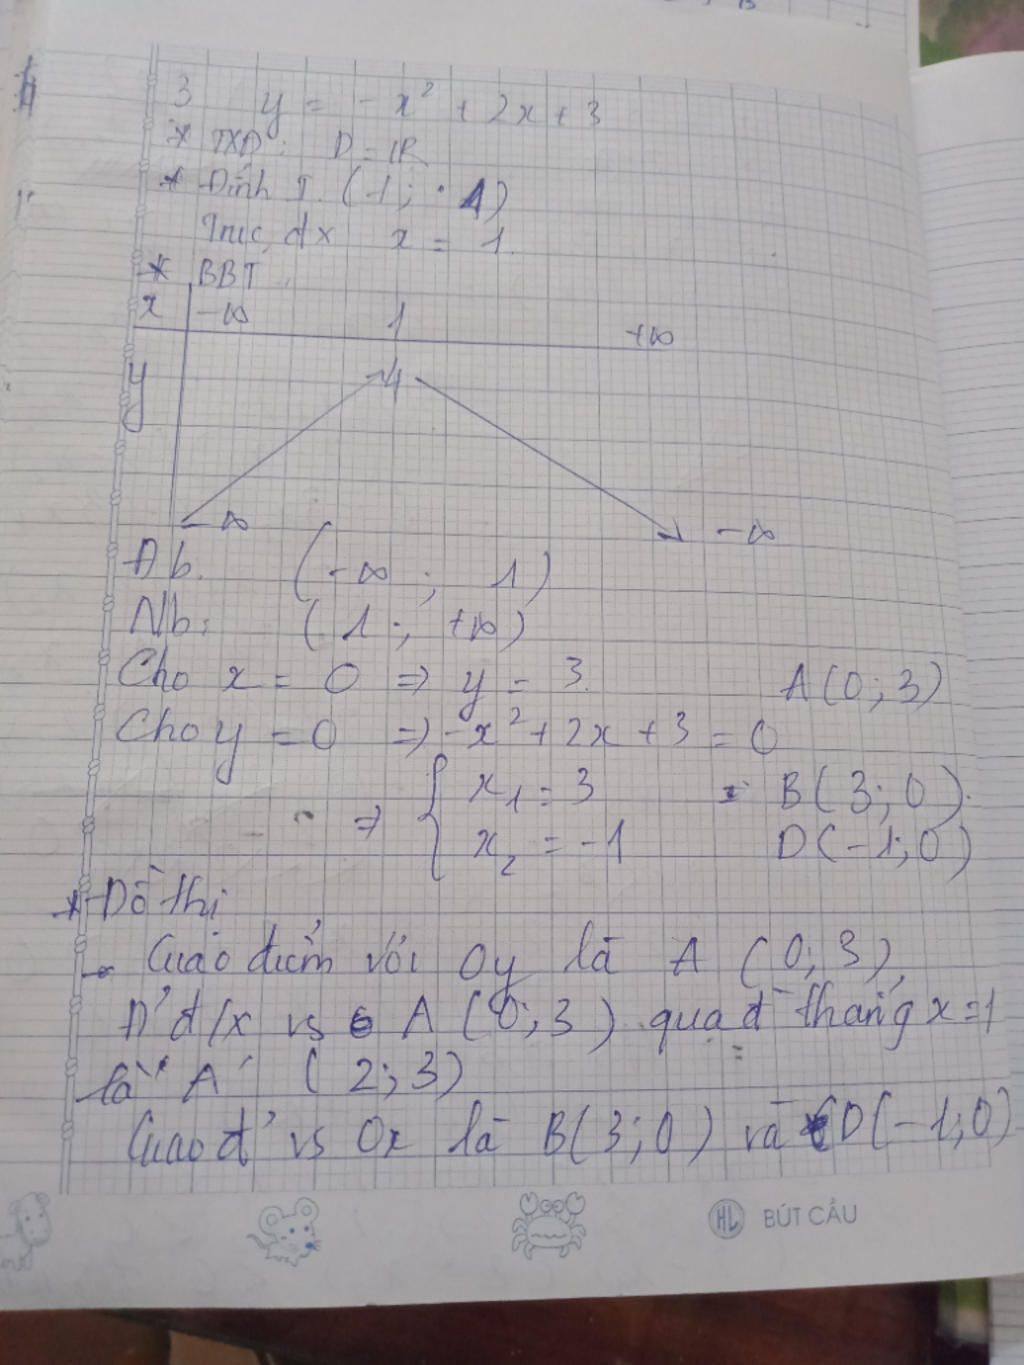 3 y = - x² + 2x + 3
* TXĐ: D = IR
* Đỉnh I. (1; 4)
Trục đx x = 1.
* BBT
x -∞ 1 +∞
y 4
-∞ -∞
Đb. (-∞ ; 1)
Nb: (1 ; +∞)
Cho x = 0 => y = 3. A(0; 3)
Cho y = 0 => -x² + 2x + 3 = 0
=> { x₁ = 3 B(3; 0).
x₂ = -1 D(-1; 0)
* Đồ thị
- Giao điểm với Oy là A (0; 3),
Đ' đ/x vs A (0; 3) qua đ thẳng x = 1
là A' (2; 3)
Giao đ' vs Ox là B(3; 0) và D(-1; 0)
HL BÚT CẦU